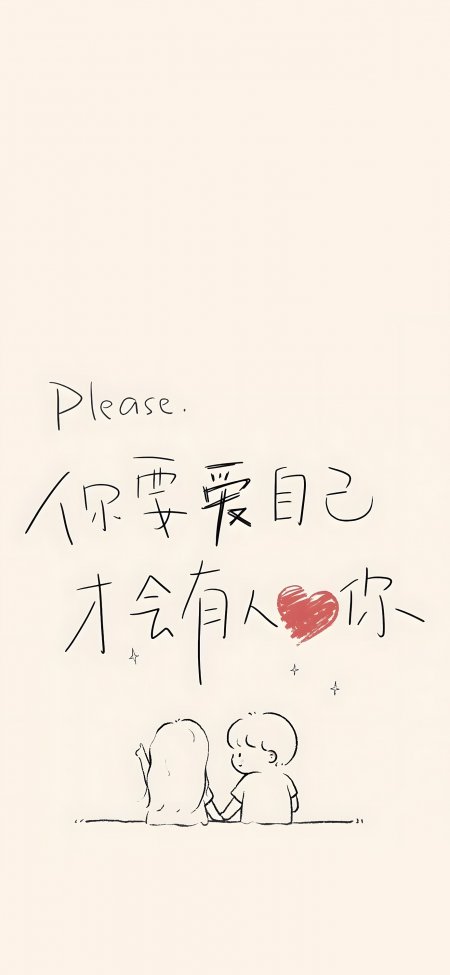 Please.
你要爱自己
才会有人❤你